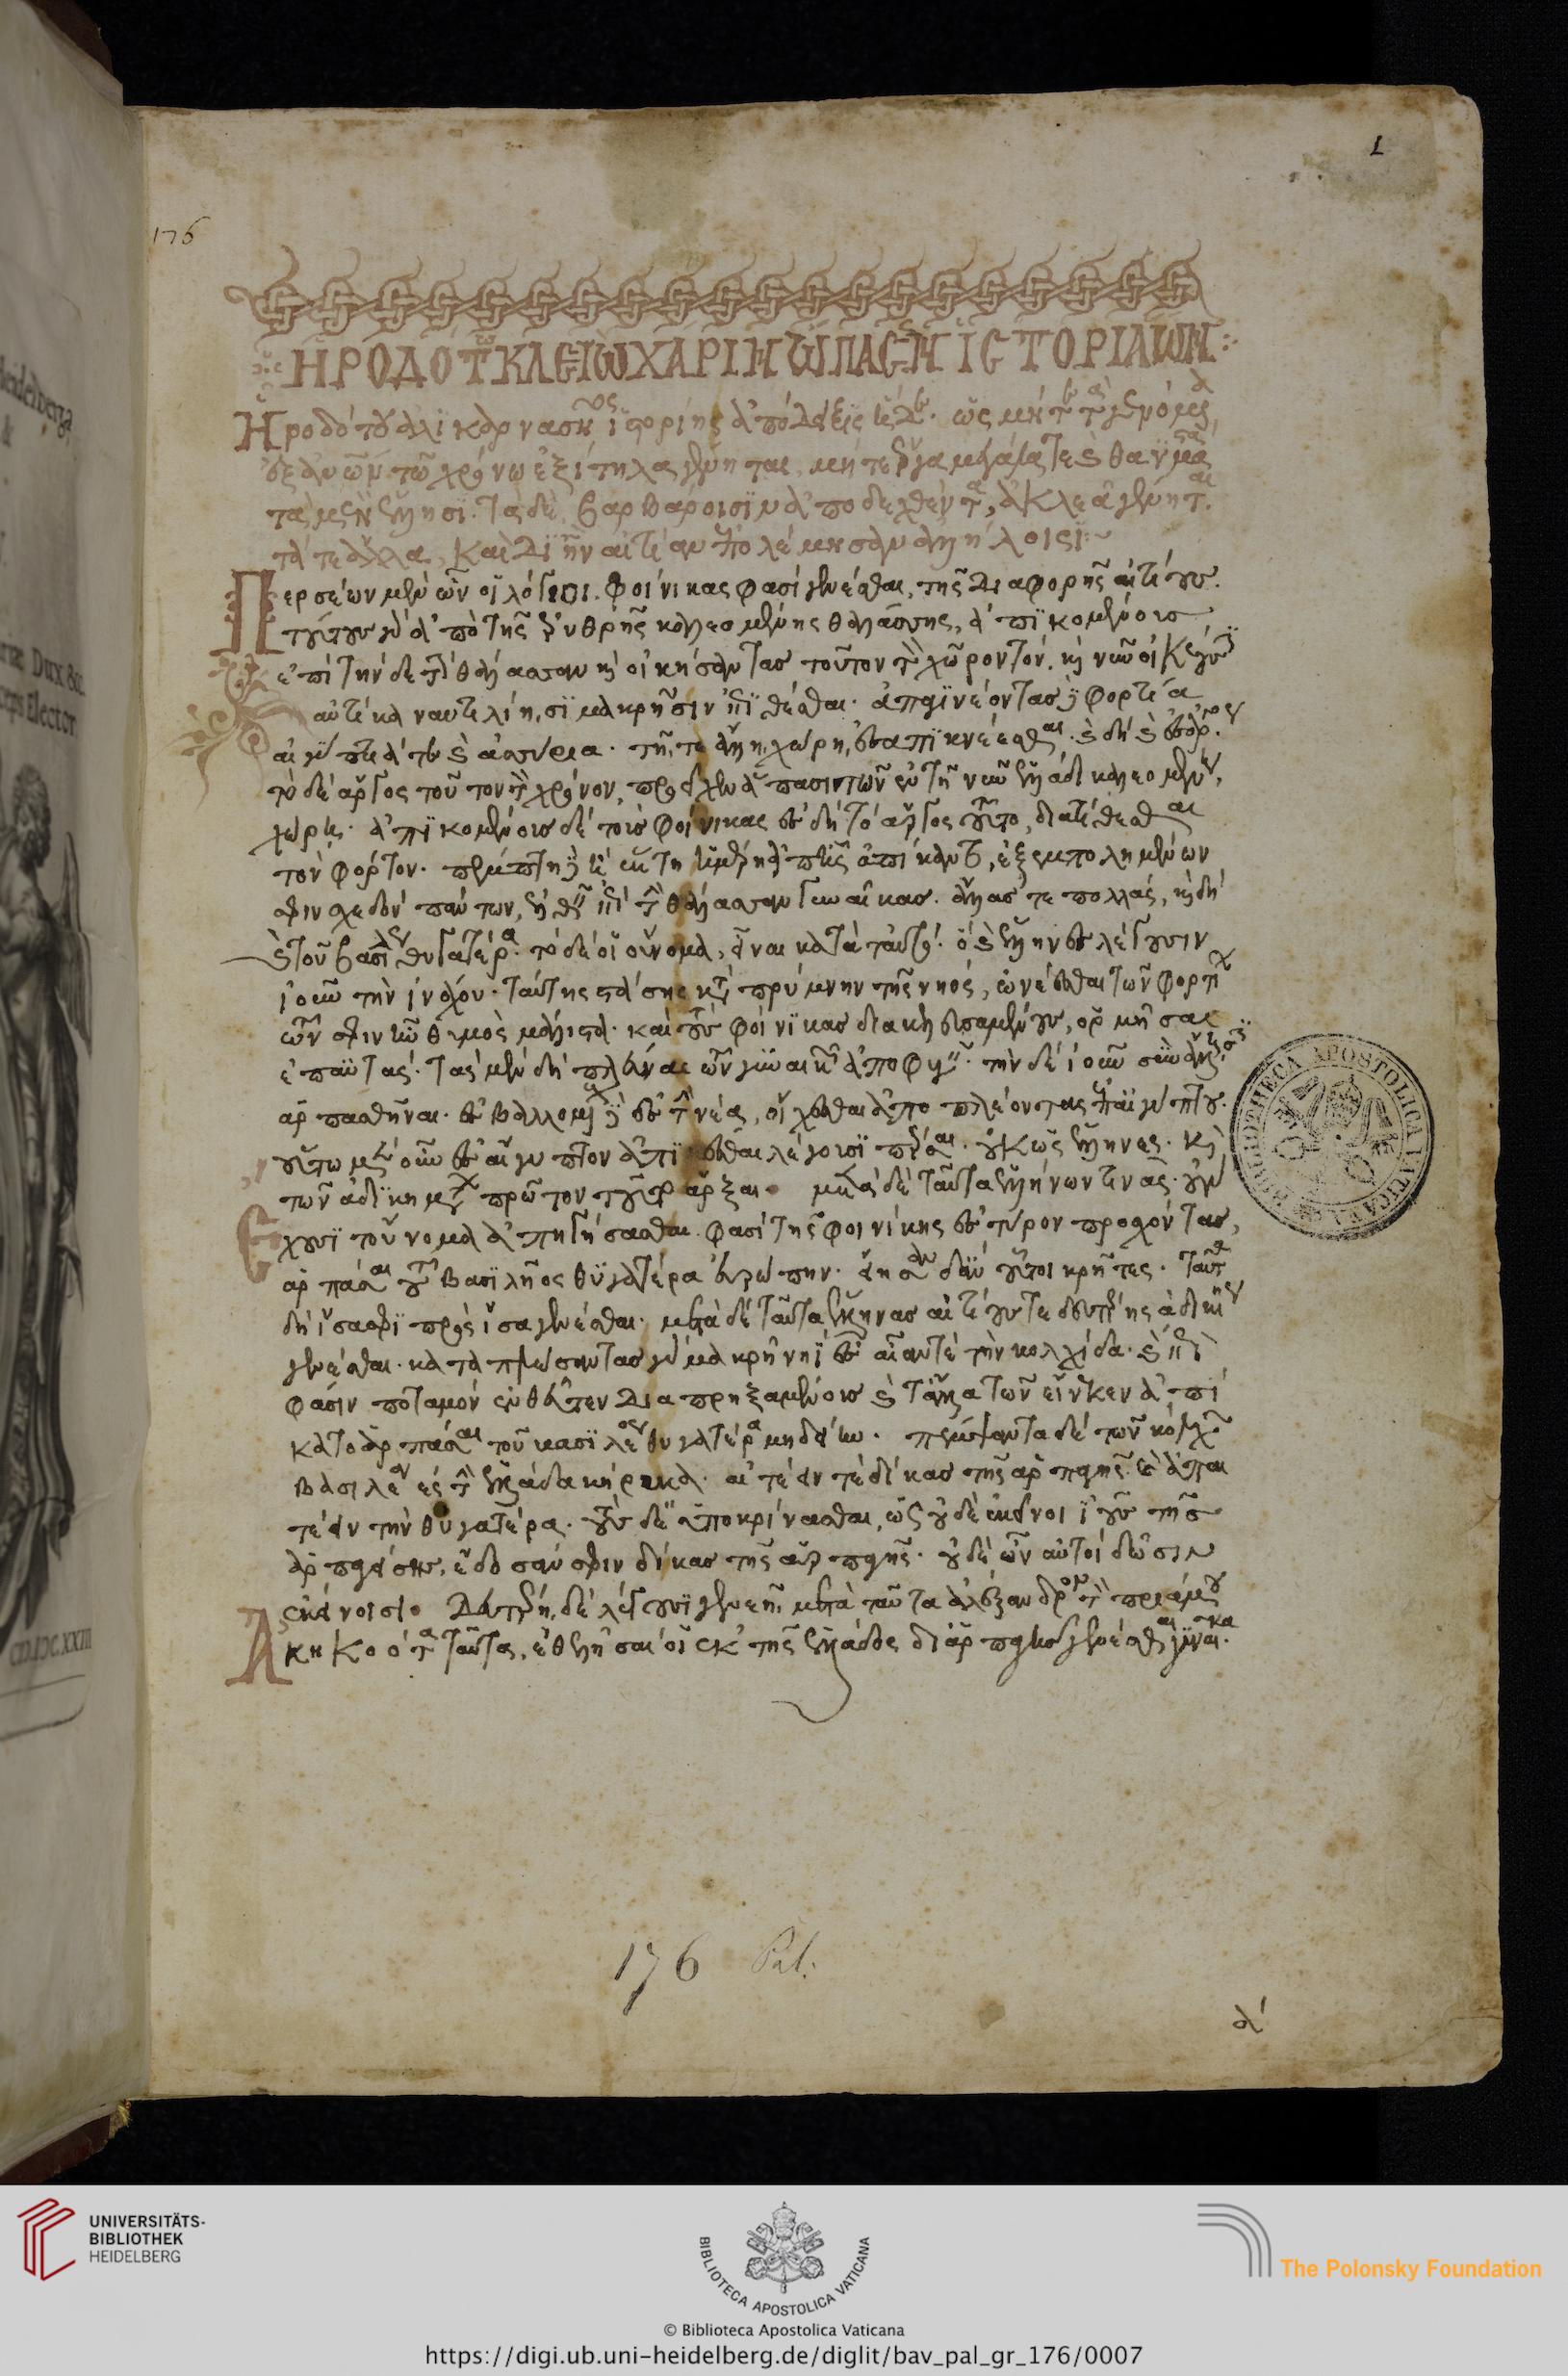 176
1
ΗΡΟΔΟΤ ΚΛΕΙΩ ΧΑΡΙΝ ΠΑΣΗ ΙΣΤΟΡΙΑΩΝ
Ηροδότου ἁλικαρνασ ἱστορίης ἀπόδεξις ὡς μήτε
τῶ χρόνω ἐξίτηλα γένηται μήτε ἔργα μεγάλα τε καὶ θαϋμα
τὰ μὲν ἕλλησι τὰ δὲ βαρβάροισι ἀποδεχθέντα ἀκλεᾶ γένηται
τά τε ἄλλα καὶ δι ἣν αἰτίαν ἐπολέμησαν ἀλλήλοισι
Περσέων μὲν ὦν οἱ λόγιοι φοίνικας φασὶ γενέσθαι τῆς διαφορῆς αἰτίους
τούτους γὰρ ἀπὸ τῆς ἐρυθρῆς καλεομένης θαλάσσης ἀπικομένους
ἐπὶ τήνδε τὴν θάλασσαν καὶ οἰκήσαντας τοῦτον τὸν χῶρον τὸν καὶ νῦν οἰκέουσι
αὐτίκα ναυτιλίησι μακρῆσιν ἐπιθέσθαι ἀπαγινέοντας δὲ φορτία
τὸ δὲ ἄργος τοῦτον τὸν χρόνον προεῖχεν ἅπασι τῶν ἐν τῆ νῦν ἑλλάδι καλεομένη
χώρη ἀπικομένους δὲ τοὺς φοίνικας ἐς δὴ τὸ ἄργος τοῦτο διατίθεσθαι
τὸν φόρτον πέμπτη δὲ ἢ ἕκτη ἡμέρη ἀπ ἧς ἀπίκοντο ἐξεμπολημένων
σφιν σχεδὸν πάντων ἐλθεῖν ἐπὶ τὴν θάλασσαν γυναῖκας ἄλλας τε πολλὰς καὶ δὴ
καὶ τοῦ βασιλέος θυγατέρα τὸ δέ οἱ οὔνομα εἶναι κατὰ τωυτὸ ὃ καὶ ἕλληνες λέγουσιν
ἰοῦν τὴν ἰνάχου ταύτας στάσας κατὰ πρύμνην τῆς νηὸς ὠνέεσθαι τῶν φορτί
ων τῶν σφιν ἦν θυμὸς μάλιστα καὶ τοὺς φοίνικας διακελευσαμένους ὁρμῆσαι
ἐπ αὐτάς τὰς μὲν δὴ πλεῦνας τῶν γυναικῶν ἀποφυγεῖν τὴν δὲ ἰοῦν σὺν ἄλλησι
ἁρπασθῆναι ἐσβαλλομένους δὲ ἐς τὴν νέα οἴχεσθαι ἀποπλέοντας ἐπ αἰγύπτου
οὕτω μὲν ἰοῦν ἐς αἴγυπτον ἀπικέσθαι λέγουσι πέρσαι οὐκ ὡς ἕλληνες καὶ
τῶν ἀδικημάτων πρῶτον τοῦτο ἄρξαι μετὰ δὲ ταῦτα ἑλλήνων τινὰς οὐ γὰρ
ἔχουσι τοὔνομα ἀπηγήσασθαι φασὶ τῆς φοινίκης ἐς τύρον προσχόντας
ἁρπάσαι τοῦ βασιλῆος θυγατέρα εὐρώπην εἴησαν δ ἂν οὗτοι κρῆτες ταῦτα
δὴ ἴσα σφι πρὸς ἴσα γενέσθαι μετὰ δὲ ταῦτα ἕλληνας αἰτίους τῆς δευτέρης ἀδικίης
γενέσθαι καταπλώσαντας γὰρ μακρῆ νηΐ ἐς αἶαν τε τὴν κολχίδα καὶ ἐπὶ
φᾶσιν ποταμὸν ἐνθεῦτεν διαπρηξαμένους καὶ τἆλλα τῶν εἵνεκεν ἀπί
κατο ἁρπάσαι τοῦ βασιλέος θυγατέρα μηδείην πέμψαντα δὲ τῶν κόλχων
βασιλέα ἐς τὴν ἑλλάδα κήρυκα αἰτέειν τε δίκας τῆς ἁρπαγῆς καὶ ἀπαι
τέειν τὴν θυγατέρα τοὺς δὲ ὑποκρίνασθαι ὡς οὐδὲ ἐκεῖνοι ἰοῦς τῆς
ἁρπαγείσης ἔδοσάν σφιν δίκας τῆς ἁρπαγῆς οὐδὲ ὦν αὐτοὶ δώσιν
ἐκείνοισι Δευτέρη δὲ λέγουσι γενεῆ μετὰ ταῦτα ἀλέξανδρον τὸν πριάμου
Ἀκηκοότα ταῦτα ἐθελῆσαι οἱ ἐκ τῆς ἑλλάδος δι ἁρπαγῆς γενέσθαι γυναῖκα
176 Pal.
α'
UNIVERSITÄTS-
BIBLIOTHEK
HEIDELBERG
BIBLIOTECA APOSTOLICA VATICANA
The Polonsky Foundation
© Biblioteca Apostolica Vaticana
https://digi.ub.uni-heidelberg.de/diglit/bav_pal_gr_176/0007